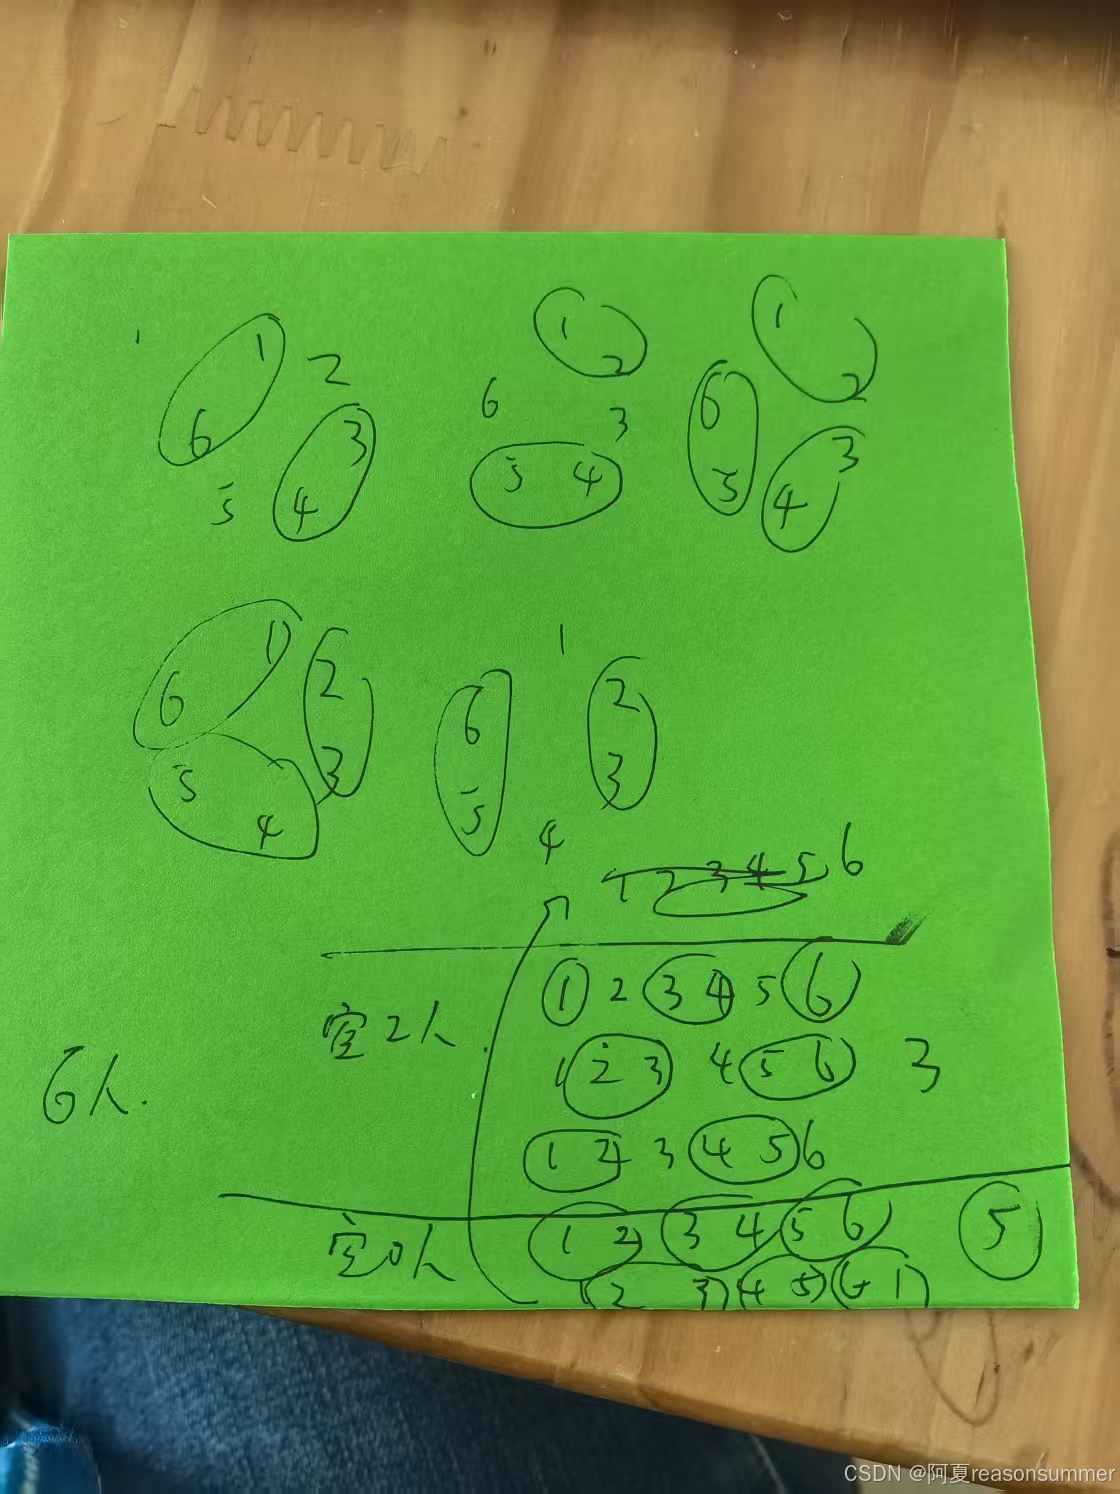 1 2 1 1
6 3 6 2 6 2
5 4 3 3
5 4 5 4
1 2 6 1 2
6 3 5 3
5 4 4
1 2 3 4 5 6
空2人 1 2 3 4 5 6
1 2 3 4 5 6 3
6人. 1 2 3 4 5 6
空0人 1 2 3 4 5 6 5
1 2 3 4 5 6 1
CSDN @阿夏reasonsummer